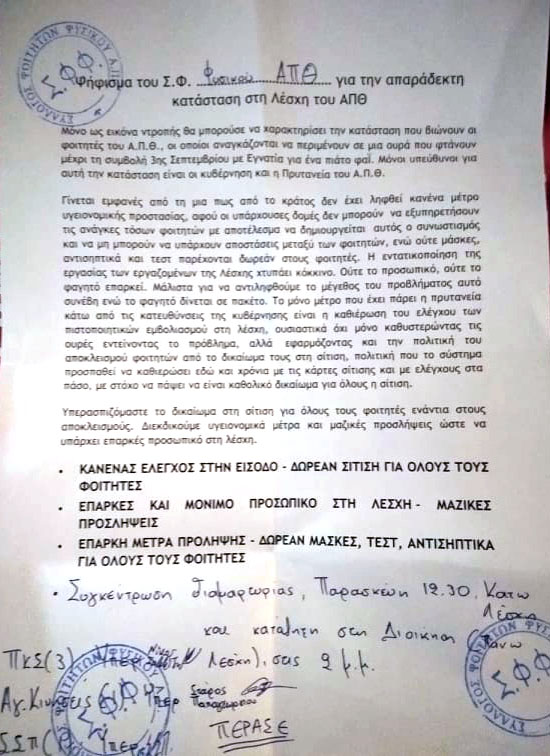 ΣΥΛΛΟΓΟΣ ΦΟΙΤΗΤΩΝ ΦΥΣΙΚΟΥ Α.Π.Θ
Σ.Φ.Φ.
Ψήφισμα του Σ.Φ. Φυσικού ΑΠΘ για την απαράδεκτη
κατάσταση στη Λέσχη του ΑΠΘ
Μόνο ως εικόνα ντροπής θα μπορούσε να χαρακτηρίσει την κατάσταση που βιώνουν οι
φοιτητές του Α.Π.Θ., οι οποίοι αναγκάζονται να περιμένουν σε μια ουρά που φτάνουν
μέχρι τη συμβολή 3ης Σεπτεμβρίου με Εγνατία για ένα πιάτο φαΐ. Μόνοι υπεύθυνοι για
αυτή την κατάσταση είναι οι κυβέρνηση και η Πρυτανεία του Α.Π.Θ.
Γίνεται εμφανές από τη μια πως από το κράτος δεν έχει ληφθεί κανένα μέτρο
υγειονομικής προστασίας, αφού οι υπάρχουσες δομές δεν μπορούν να εξυπηρετήσουν
τις ανάγκες τόσων φοιτητών με αποτέλεσμα να δημιουργείται αυτός ο συνωστισμός
και να μη μπορούν να υπάρχουν αποστάσεις μεταξύ των φοιτητών, ενώ ούτε μάσκες,
αντισηπτικά και τεστ παρέχονται δωρεάν στους φοιτητές. Η εντατικοποίηση της
εργασίας των εργαζομένων της Λέσχης χτυπάει κόκκινο. Ούτε το προσωπικό, ούτε το
φαγητό επαρκεί. Μάλιστα για να αντιληφθούμε το μέγεθος του προβλήματος αυτό
συνέβη ενώ το φαγητό δίνεται σε πακέτο. Το μόνο μέτρο που έχει πάρει η πρυτανεία
κάτω από τις κατευθύνσεις της κυβέρνησης είναι η καθιέρωση του ελέγχου των
πιστοποιητικών εμβολιασμού στη λέσχη, ουσιαστικά όχι μόνο καθυστερώντας τις
ουρές εντείνοντας το πρόβλημα, αλλά εφαρμόζοντας και την πολιτική του
αποκλεισμού φοιτητών από το δικαίωμα τους στη σίτιση, πολιτική που το σύστημα
προσπαθεί να καθιερώσει εδώ και χρόνια με τις κάρτες σίτισης και με ελέγχους στα
πάσο, με στόχο να πάψει να είναι καθολικό δικαίωμα για όλους η σίτιση.
Υπερασπιζόμαστε το δικαίωμα στη σίτιση για όλους τους φοιτητές ενάντια στους
αποκλεισμούς. Διεκδικούμε υγειονομικά μέτρα και μαζικές προσλήψεις ώστε να
υπάρχει επαρκές προσωπικό στη λέσχη.
• ΚΑΝΕΝΑΣ ΕΛΕΓΧΟΣ ΣΤΗΝ ΕΙΣΟΔΟ - ΔΩΡΕΑΝ ΣΙΤΙΣΗ ΓΙΑ ΟΛΟΥΣ ΤΟΥΣ
ΦΟΙΤΗΤΕΣ
• ΕΠΑΡΚΕΣ ΚΑΙ ΜΟΝΙΜΟ ΠΡΟΣΩΠΙΚΟ ΣΤΗ ΛΕΣΧΗ - ΜΑΖΙΚΕΣ
ΠΡΟΣΛΗΨΕΙΣ
• ΕΠΑΡΚΗ ΜΕΤΡΑ ΠΡΟΛΗΨΗΣ - ΔΩΡΕΑΝ ΜΑΣΚΕΣ, ΤΕΣΤ, ΑΝΤΙΣΗΠΤΙΚΑ
ΓΙΑ ΟΛΟΥΣ ΤΟΥΣ ΦΟΙΤΗΤΕΣ
• Συγκέντρωση διαμαρτυρίας, Παρασκευή 12.30, Κάτω
Λέσχη
και κατάληψη στη Διοίκηση (πάνω
Λέσχη), στις 2 μ.μ.
ΠΚΣ(3) Υπέρ
Αγ. Κινήσεις Υπέρ Σταύρος
ΔΑΠ( Υπέρ
ΠΕΡΑΣΕ